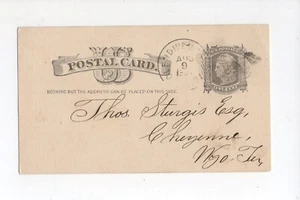 POSTAL CARD.
AUG
9
NOTHING BUT THE ADDRESS CAN BE PLACED ON THIS SIDE.
Thos. Sturgis Esq,
Cheyenne,
Wyo. Ter,